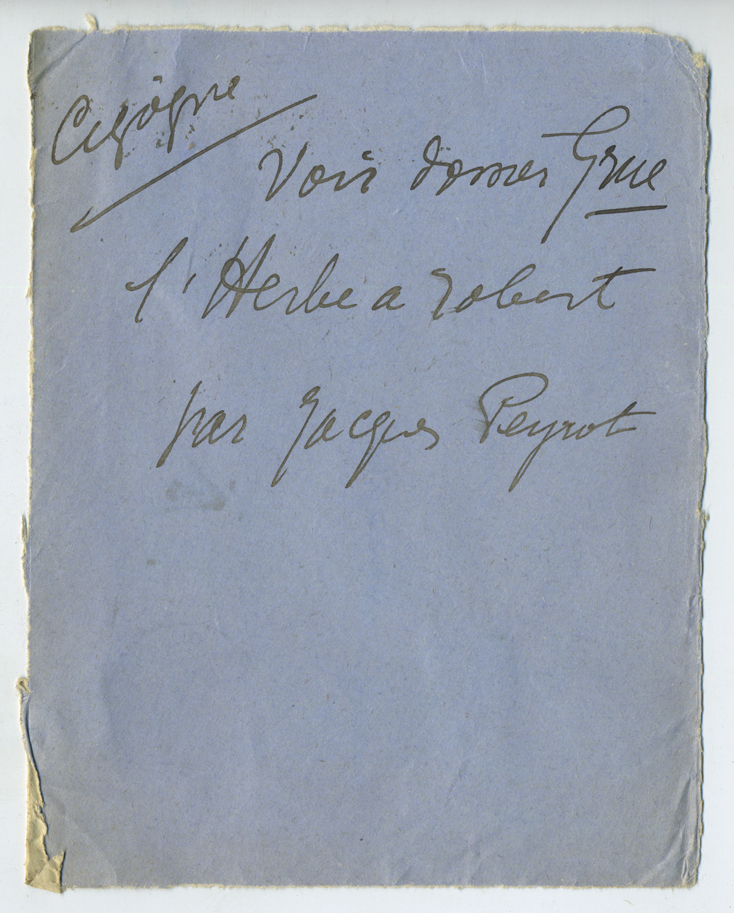 Cigogne
Voir dossier Grue
l'Herbe a robert
par Jacques Peyrot